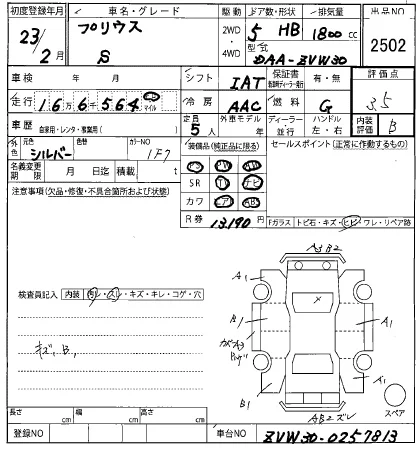 初度登録年月 車名・グレード 駆動 ドア数・形状 排気量 出品NO
23/2月 プリウス S 2WD・4WD 5 HB 1800 cc 2502
型式 DAA-ZVW30
車検 年 月 シフト IAT 保証書 有・無 評価点
走行 16万6千564 km マイル 冷房 AAC 燃料 G 3.5
車歴 自家用・レンタ・事業用( ) 定員 5人 外車モデル 年 ディーラー 並行 ハンドル 左・右 内装評価 B
外色 元色 シルバー 色替 カラーNO 1F7 装備品(純正品に限る) セールスポイント(正常に作動するもの)
名義変更期限 月 日迄 積載 t PS PW AW
注意事項(欠品・修復・不具合箇所および状態) SR TV ナビ
カワ エアB ABS
R券 13,190円 Fガラス トビ石・キズ・ヒビ・ワレ・リペア跡
A3 B2
検査員記入 内装 汚レ・スレ・キズ・キレ・コゲ・穴
A1
B1 A1
キズ、B1
A1
B1
AB2 ズレ
スペア
長さ cm 幅 cm 高さ cm
登録NO 車台NO ZVW30-0257813